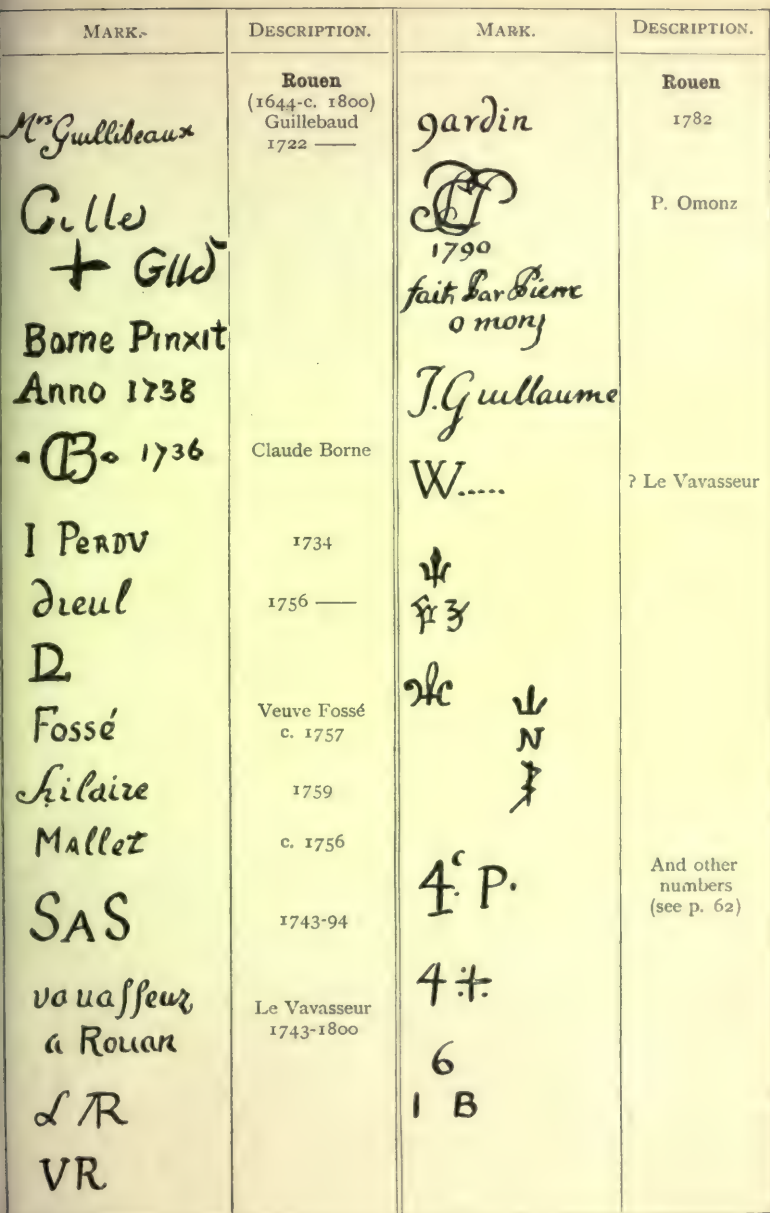 MARK.
DESCRIPTION.
Rouen
(1644-c. 1800)
Mrs Guillibeaux
Guillebaud
1722 ——
Cille
+ Glld
Borne Pinxit
Anno 1738
CB 1736
Claude Borne
I PERDV
1734
dieul
1756 ——
D
Fossé
Veuve Fossé
c. 1757
hilaire
1759
Mallet
c. 1756
SAS
1743-94
vauasseur
a Rouan
Le Vavasseur
1743-1800
VR
MARK.
DESCRIPTION.
Rouen
gardin
1782
P. Omonz
1790
fait Par Pierre
omonz
J. Guillaume
W.....
? Le Vavasseur
N
4c P.
And other
numbers
(see p. 62)
4
6
I B